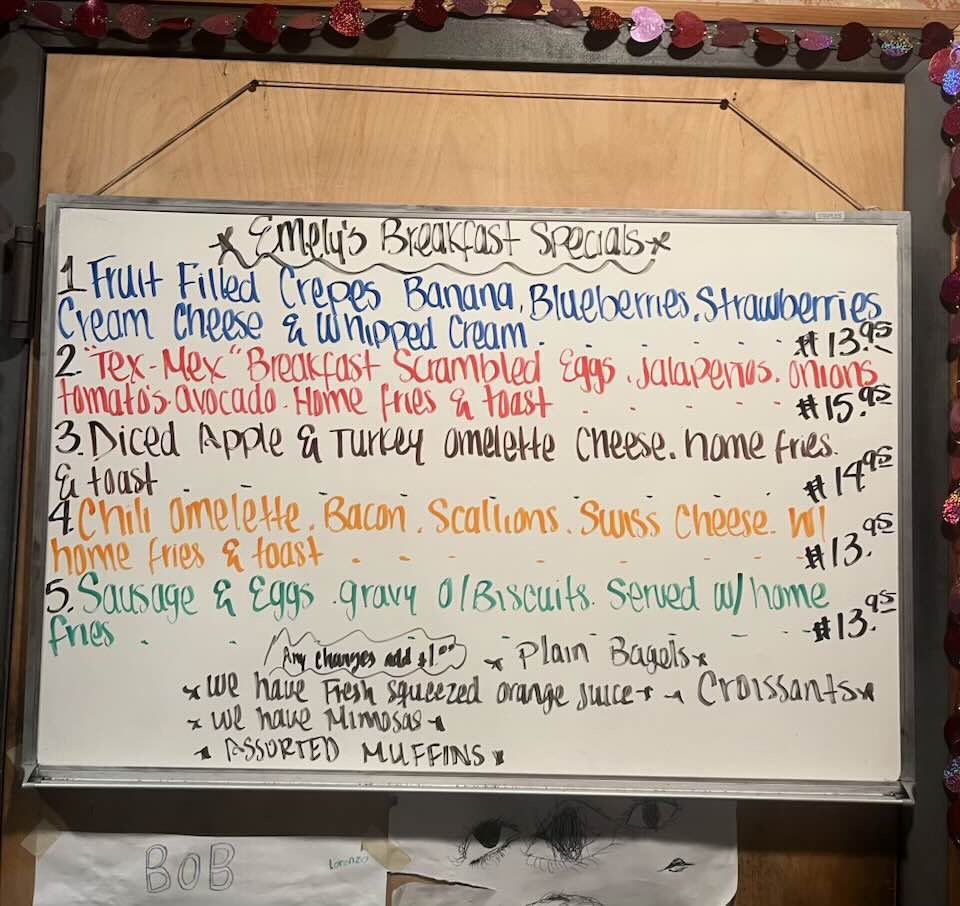 *Emely's Breakfast Specials*
1 Fruit Filled Crepes Banana, Blueberries. Strawberries
Cream Cheese & Whipped Cream. - - - - - $13.95
2. "Tex-Mex" Breakfast Scrambled Eggs. Jalapeños. onions
tomato's. avocado. Home fries & toast . - - - - $15.95
3. Diced Apple & Turkey omelette Cheese. home fries.
& toast - - - - - - - - $14.95
4. Chili omelette. Bacon. Scallions. Swiss Cheese. W/
home fries & toast - - - - - - - $13.95
5. Sausage & Eggs. gravy O/Biscuits. Served w/ home
fries - - - - - - - - $13.95
Any changes add $1.00 * Plain Bagels*
*We have Fresh squeezed orange Juice* - Croissants*
*We have Mimosas*
* ASSORTED MUFFINS *
BOB
Lorenzo